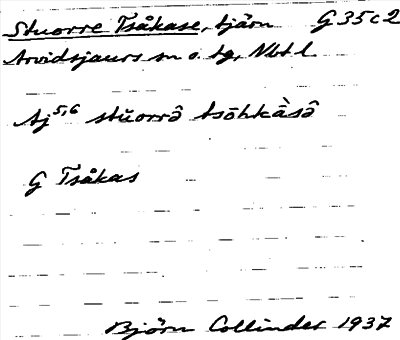 Stuorre Tsåkase, tjärn G 35 c 2
Arvidsjaurs sn o. tg, Nbt l.
Aj 5,6 stŭorrâ tsōhkȁsâ
G Tsåkas
Björn Collinder 1937